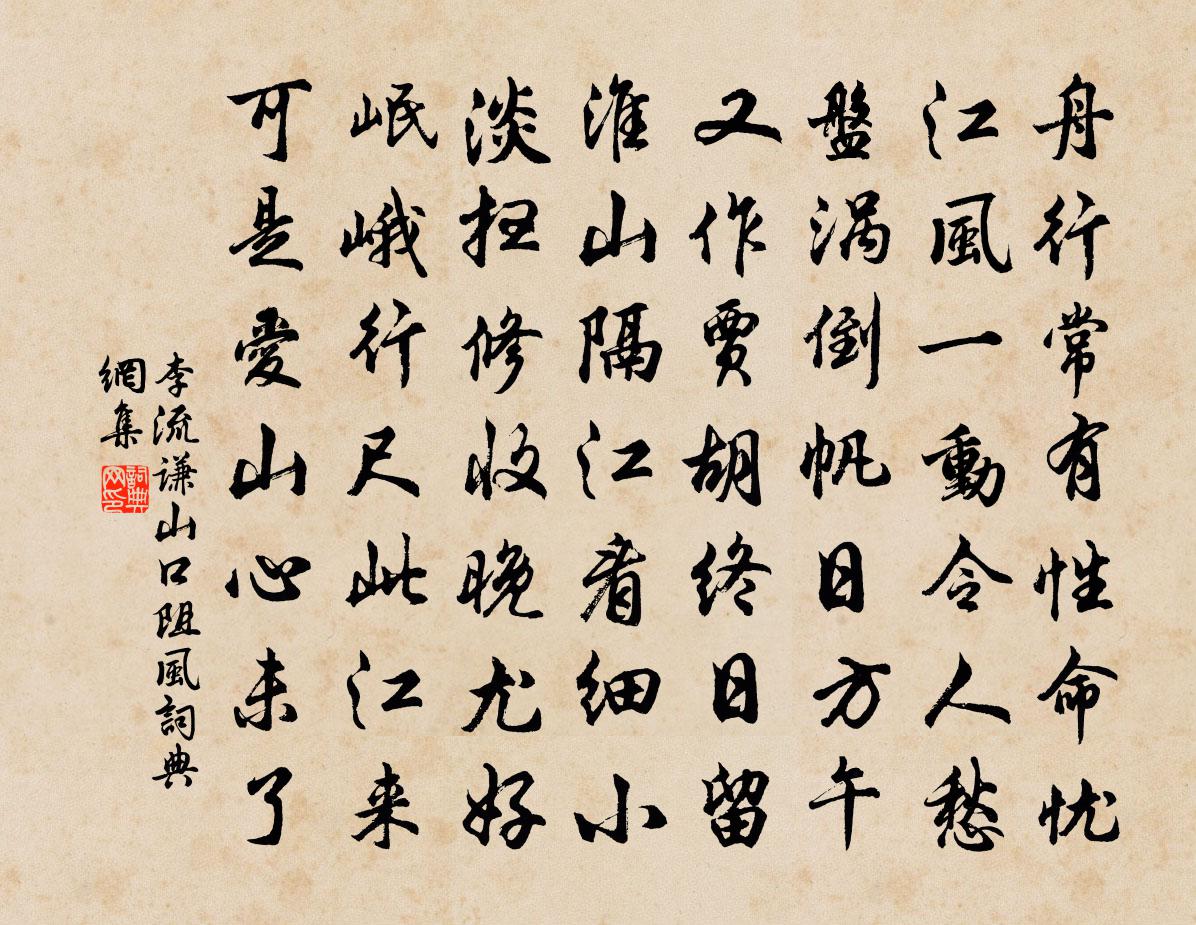 舟行常有性命忧
江風一動令人愁
盤涡倒帆日方午
又作賈胡終日留
淮山隔江看細小
淡扫修收晚尤好
岷峨行尺此江来
可是愛山心未了
李流谦山口阻風詞典
網集
詞典
网印